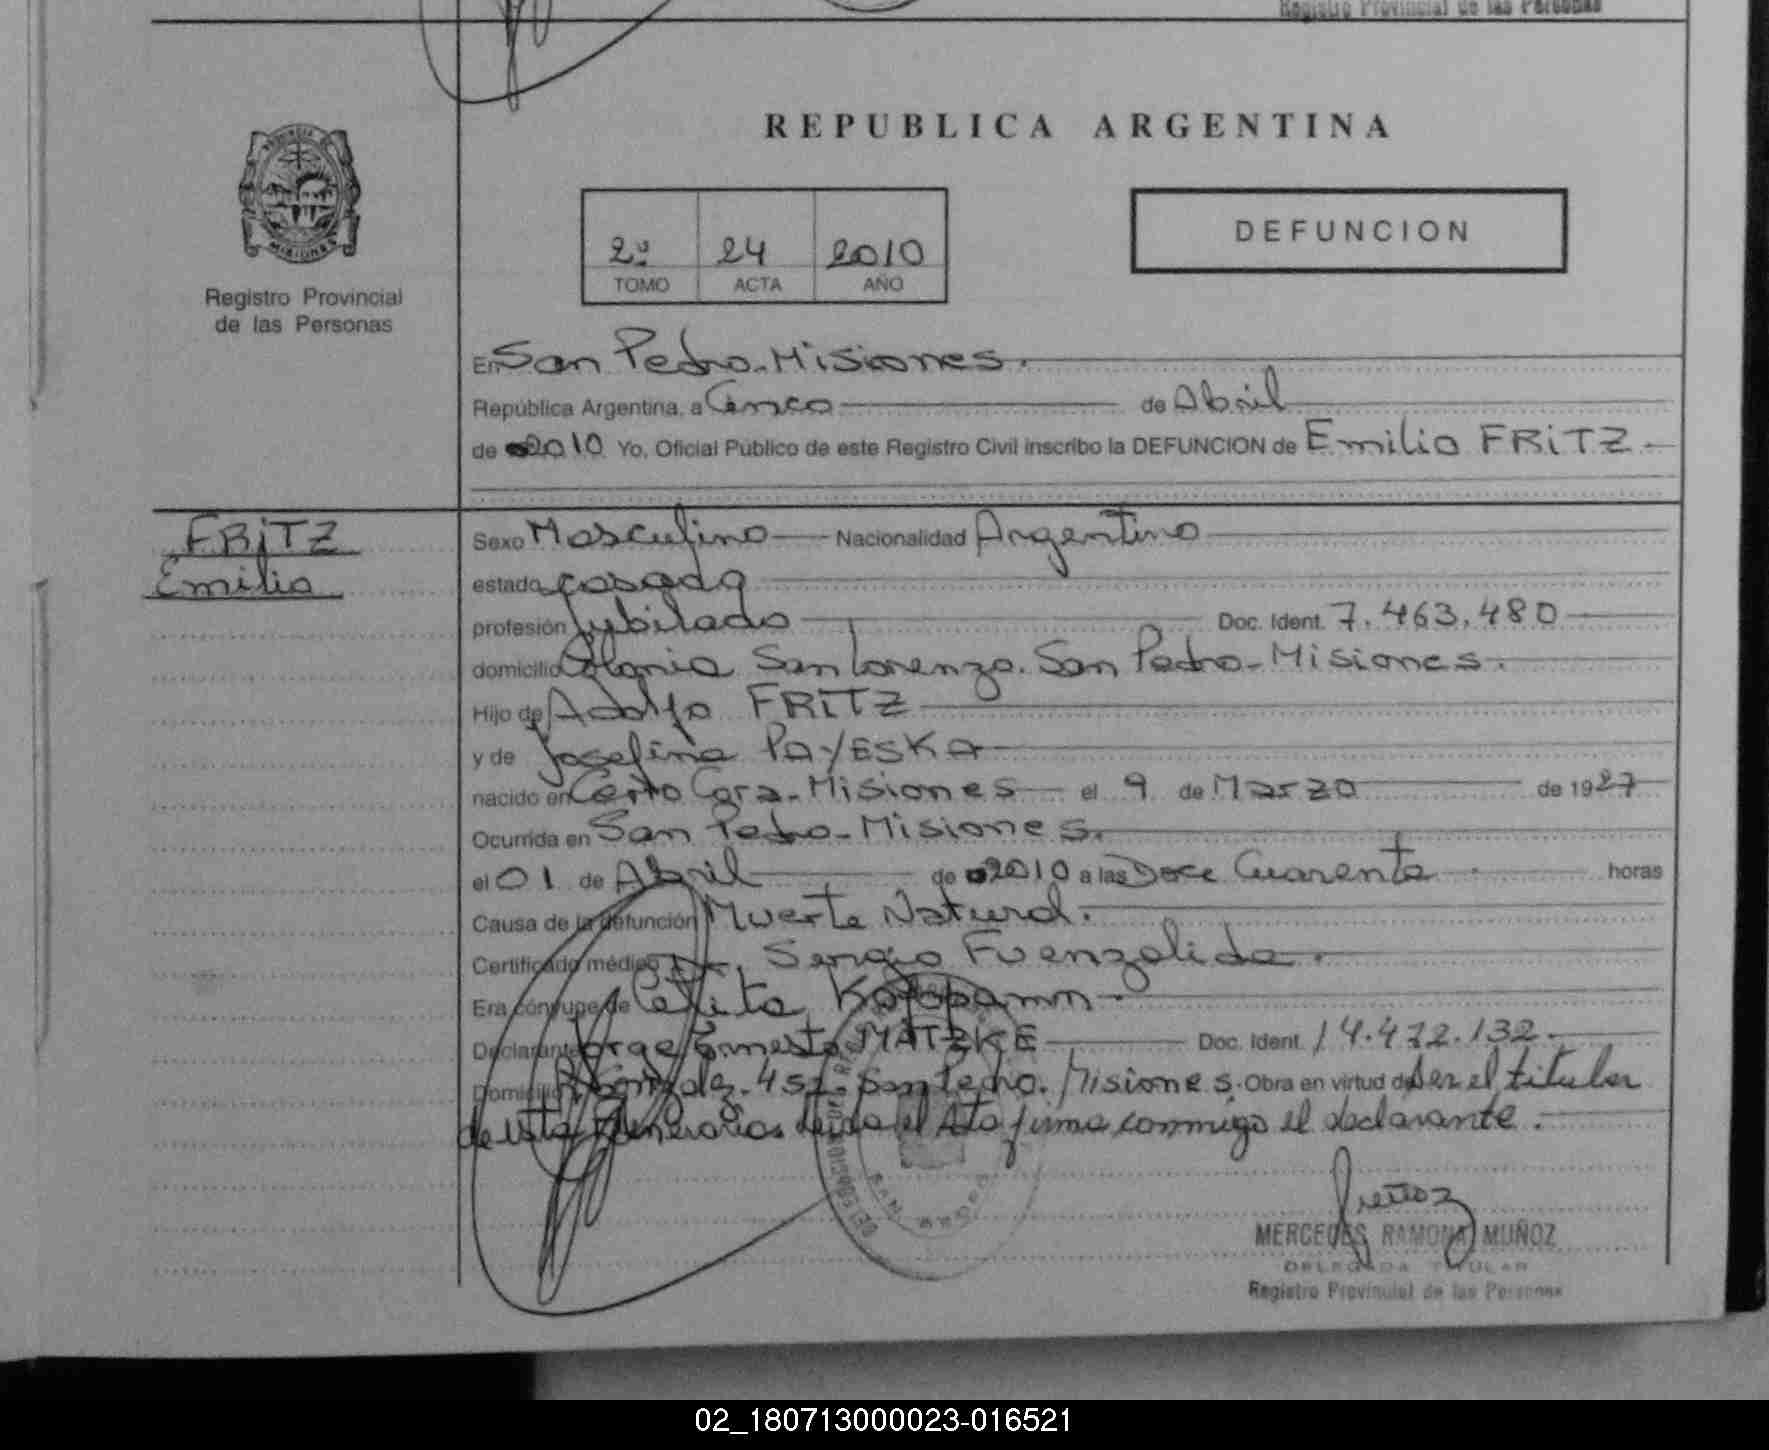 Registro Provincial de las Personas
REPUBLICA ARGENTINA
PROVINCIA
MISIONES
Registro Provincial
de las Personas
2º 24 2010
TOMO ACTA AÑO
DEFUNCION
En San Pedro-Misiones.
República Argentina, a Cinco de Abril
de 2010 Yo, Oficial Público de este Registro Civil inscribo la DEFUNCION de Emilio FRiTZ
FRiTZ
Emilio
Sexo Masculino Nacionalidad Argentino
estado casado
profesión Jubilado Doc. Ident. 7.463.480
domicilio Colonia San Lorenzo. San Pedro-Misiones.
Hijo de Adolfo FRITZ
y de Josefina PAYESKA
nacido en Cerro Cora-Misiones el 9 de Marzo de 1927
Ocurrida en San Pedro-Misiones.
el 01 de Abril de 2010 a las Doce Cuarenta horas
Causa de la defunción Muerte Natural.
Certificado médico Dr. Sergio Fuenzalida.
Era cónyuge de
Declarante Jorge Ernesto MATZKE Doc. Ident. 14.472.132
Domicilio 452. San Pedro. Misiones. Obra en virtud de Ser el titular
de esta Funeraria. Leida el Acta firma conmigo el declarante.
SAN PEDRO
Muñoz
MERCEDES RAMONA MUÑOZ
DELEGADA TITULAR
Registro Provincial de las Personas
02_180713000023-016521